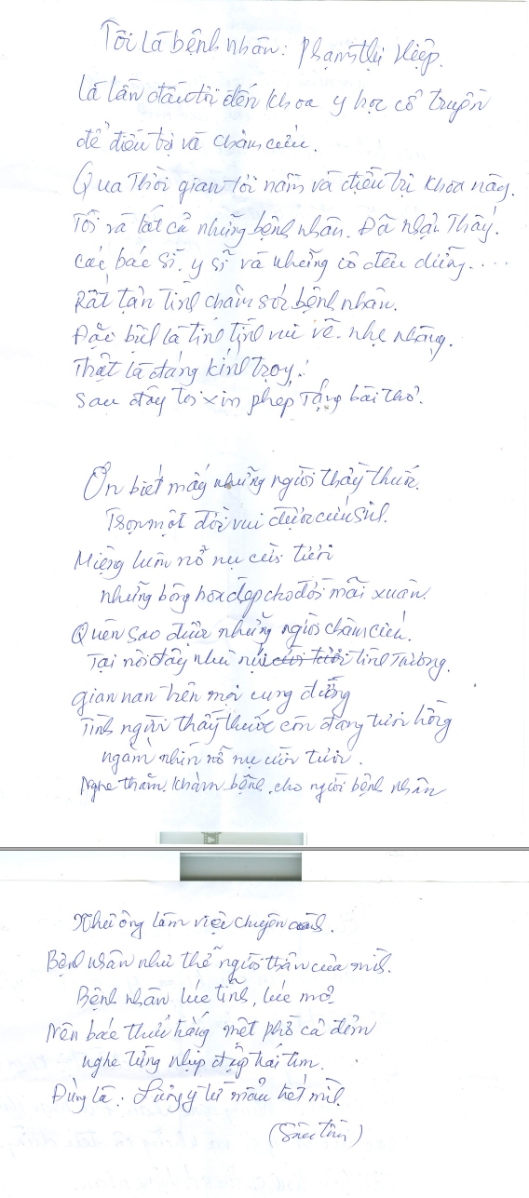 Tôi là bệnh nhân: Phạm Thị Hiệp.
Là lần đầu tôi đến khoa y học cổ truyền
để điều trị và châm cứu.
Qua thời gian tôi nằm và điều trị khoa này.
Tôi và tất cả những bệnh nhân. Đã nhận thấy.
các bác sĩ, y sĩ và những cô điều dưỡng....
Rất tận tình chăm sóc bệnh nhân.
Đặc biệt là tính tình vui vẻ. nhẹ nhàng.
Thật là đáng kính trọng!
Sau đây tôi xin phép Tặng bài thơ.
Ơn biết mấy những người thầy thuốc.
Trọn một đời vui được cứu sinh.
Miệng luôn nở nụ cười tươi
những bông hoa đẹp cho đời mãi xuân.
Quên sao được những người châm cứu.
Tại nơi đây như tình thương.
gian nan trên mọi cung đường
Tình người thầy thuốc còn đang tươi hồng
ngắm nhìn nở nụ cười tươi.
Nghe thăm, khám bệnh, cho người bệnh nhân
làm việc chuyên
Bệnh nhân như thể người thân của mình.
Bệnh nhân lúc tỉnh, lúc mơ
Nên bác thức trắng phờ cả đêm
nghe từng nhịp đập trái tim.
Đúng là. Lương y từ mẫu hết mình.
(Sưu tầm)